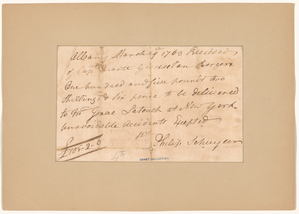 Albany March 9 1763 Received
of Cap
One hundred and five pounds two
Shillings & Six pence to be delivered
to Mr Isaac Latouch at New York
unavoidable accidents Excepted
Philip Schuyler
£105-2-6